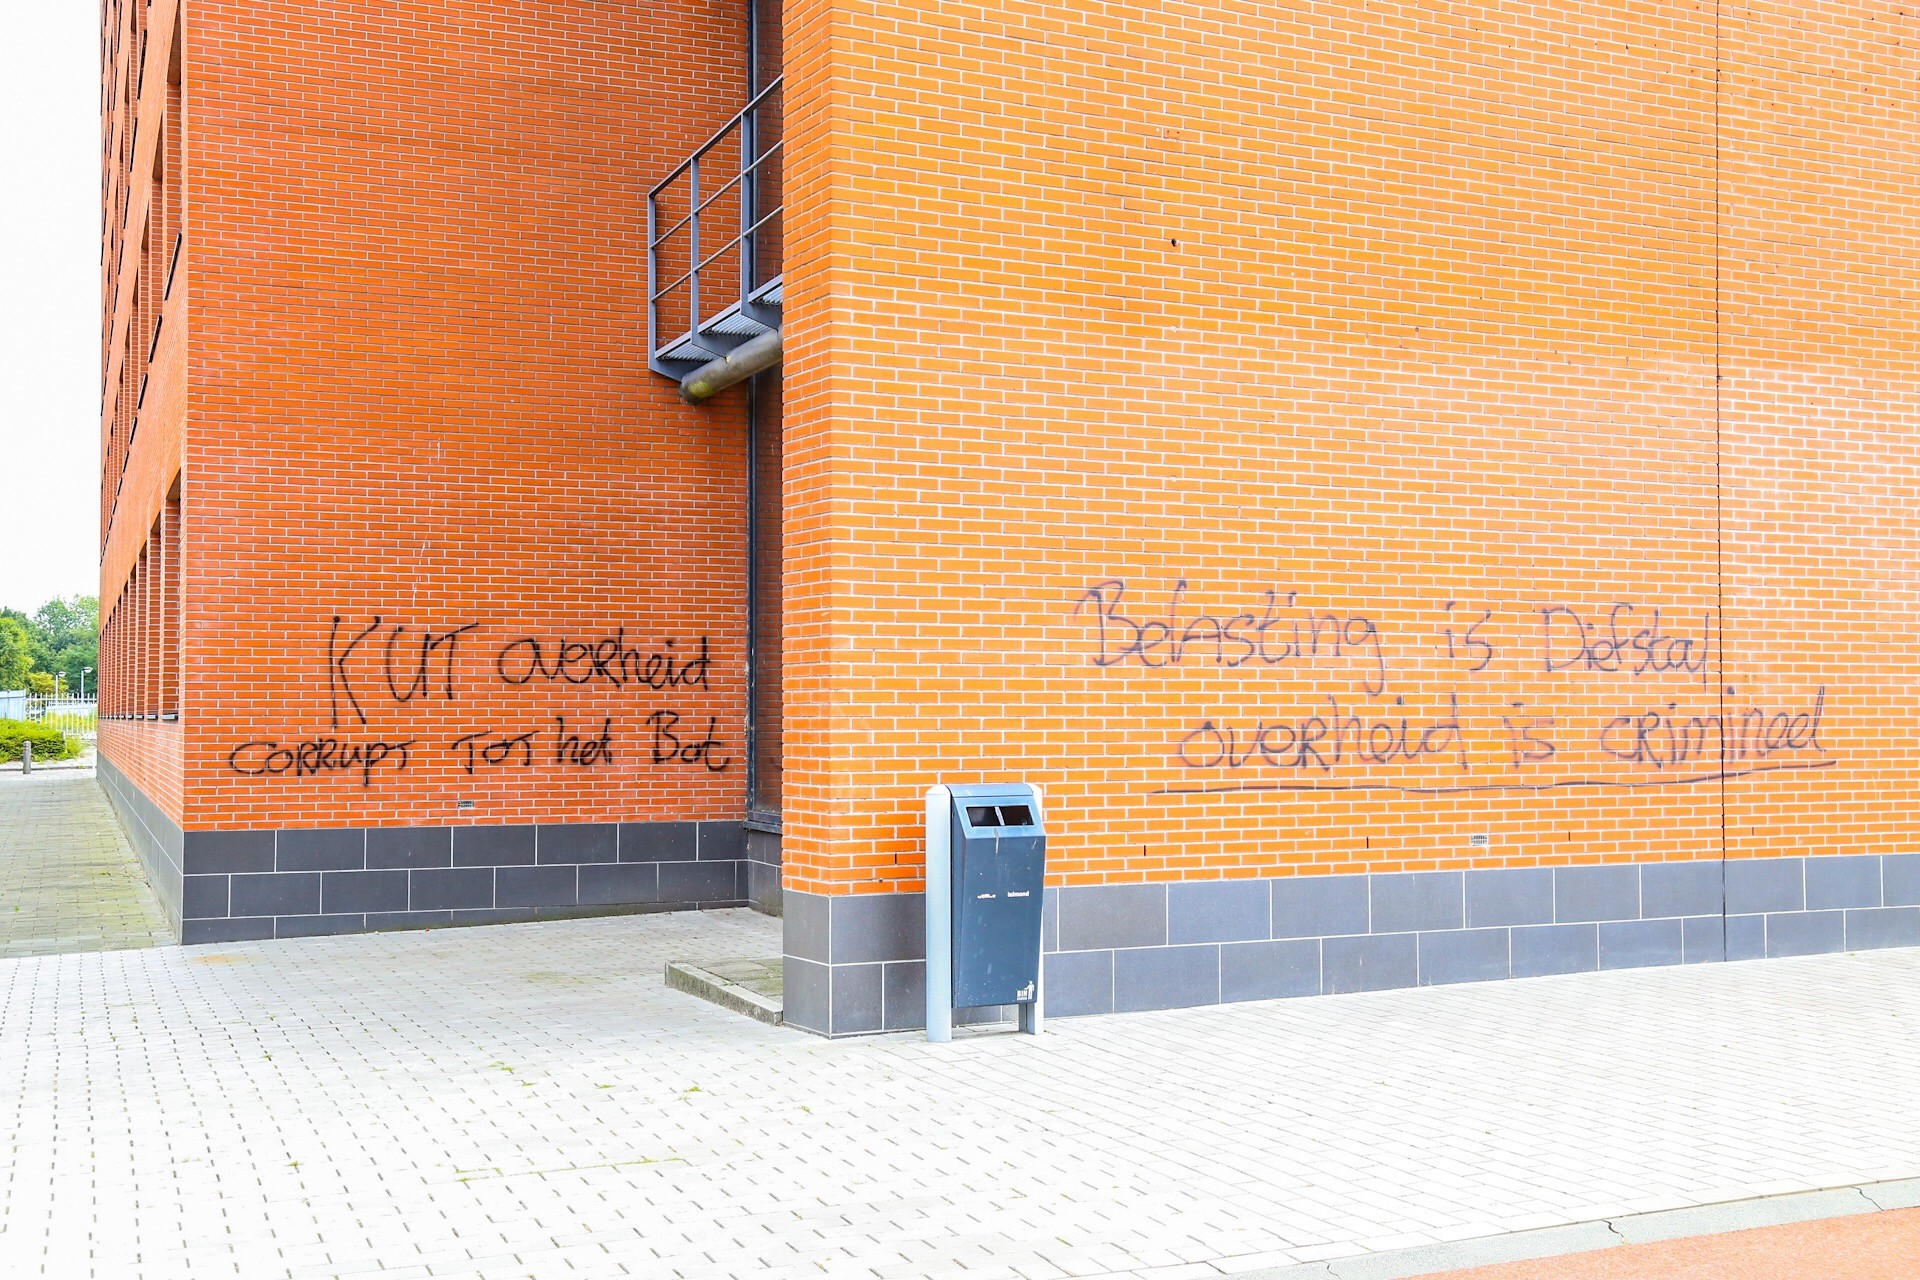 KUT overheid
CORRUPT TOT het Bot
Belasting is Diefstal
overheid is crimineel
helmond